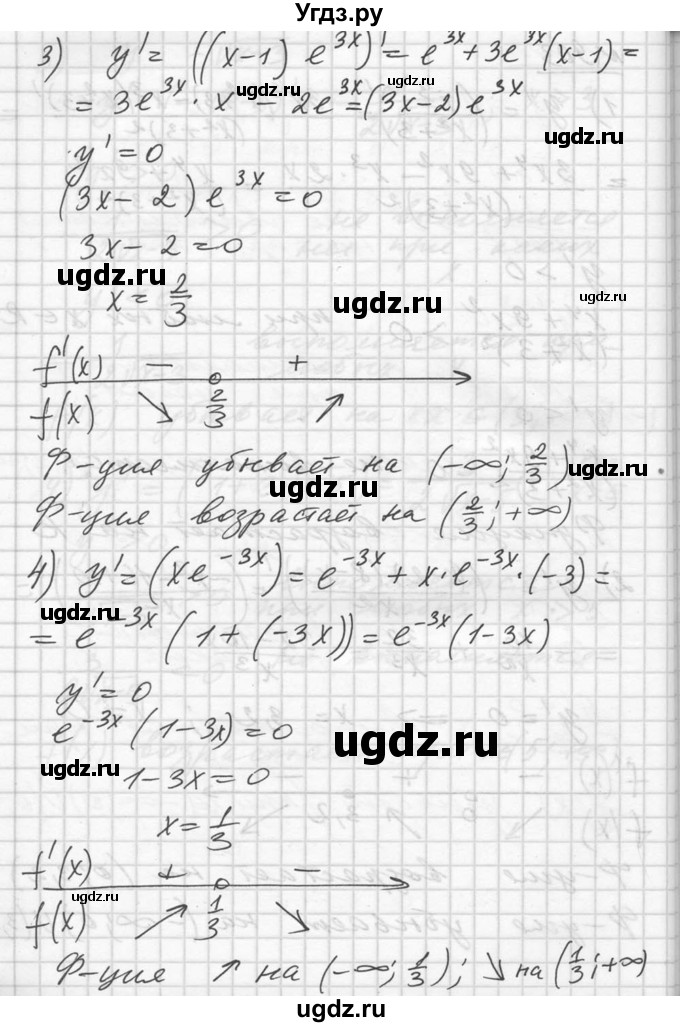 Угдз.ру
3) y' = ((x-1) e^{3x})' = e^{3x} + 3e^{3x}(x-1) =
ugdz.ru ugdz.ru
= 3e^{3x} · x - 2e^{3x} = (3x-2)e^{3x}
ugdz.ru
y' = 0
(3x - 2) e^{3x} = 0
3x - 2 = 0
ugdz.ru
x = 2/3
ugdz.ru ugdz.ru
f'(x) - +
f(x) ↘ 2/3 ↗
Ф-ция убывает на (-∞; 2/3)
ugdz.ru ugdz.ru
Ф-ция возрастает на (2/3; +∞)
4) y' = (xe^{-3x}) = e^{-3x} + x·e^{-3x}·(-3) =
ugdz.ru ugdz.ru
= e^{-3x} (1 + (-3x)) = e^{-3x}(1-3x)
y' = 0
e^{-3x} (1-3x) = 0
ugdz.ru
ugdz.ru
1-3x = 0
x = 1/3
f'(x) + -
ugdz.ru
f(x) ↗ 1/3 ↘
Ф-ция ↑ на (-∞; 1/3); ↘ на (1/3; +∞)
ugdz.ru